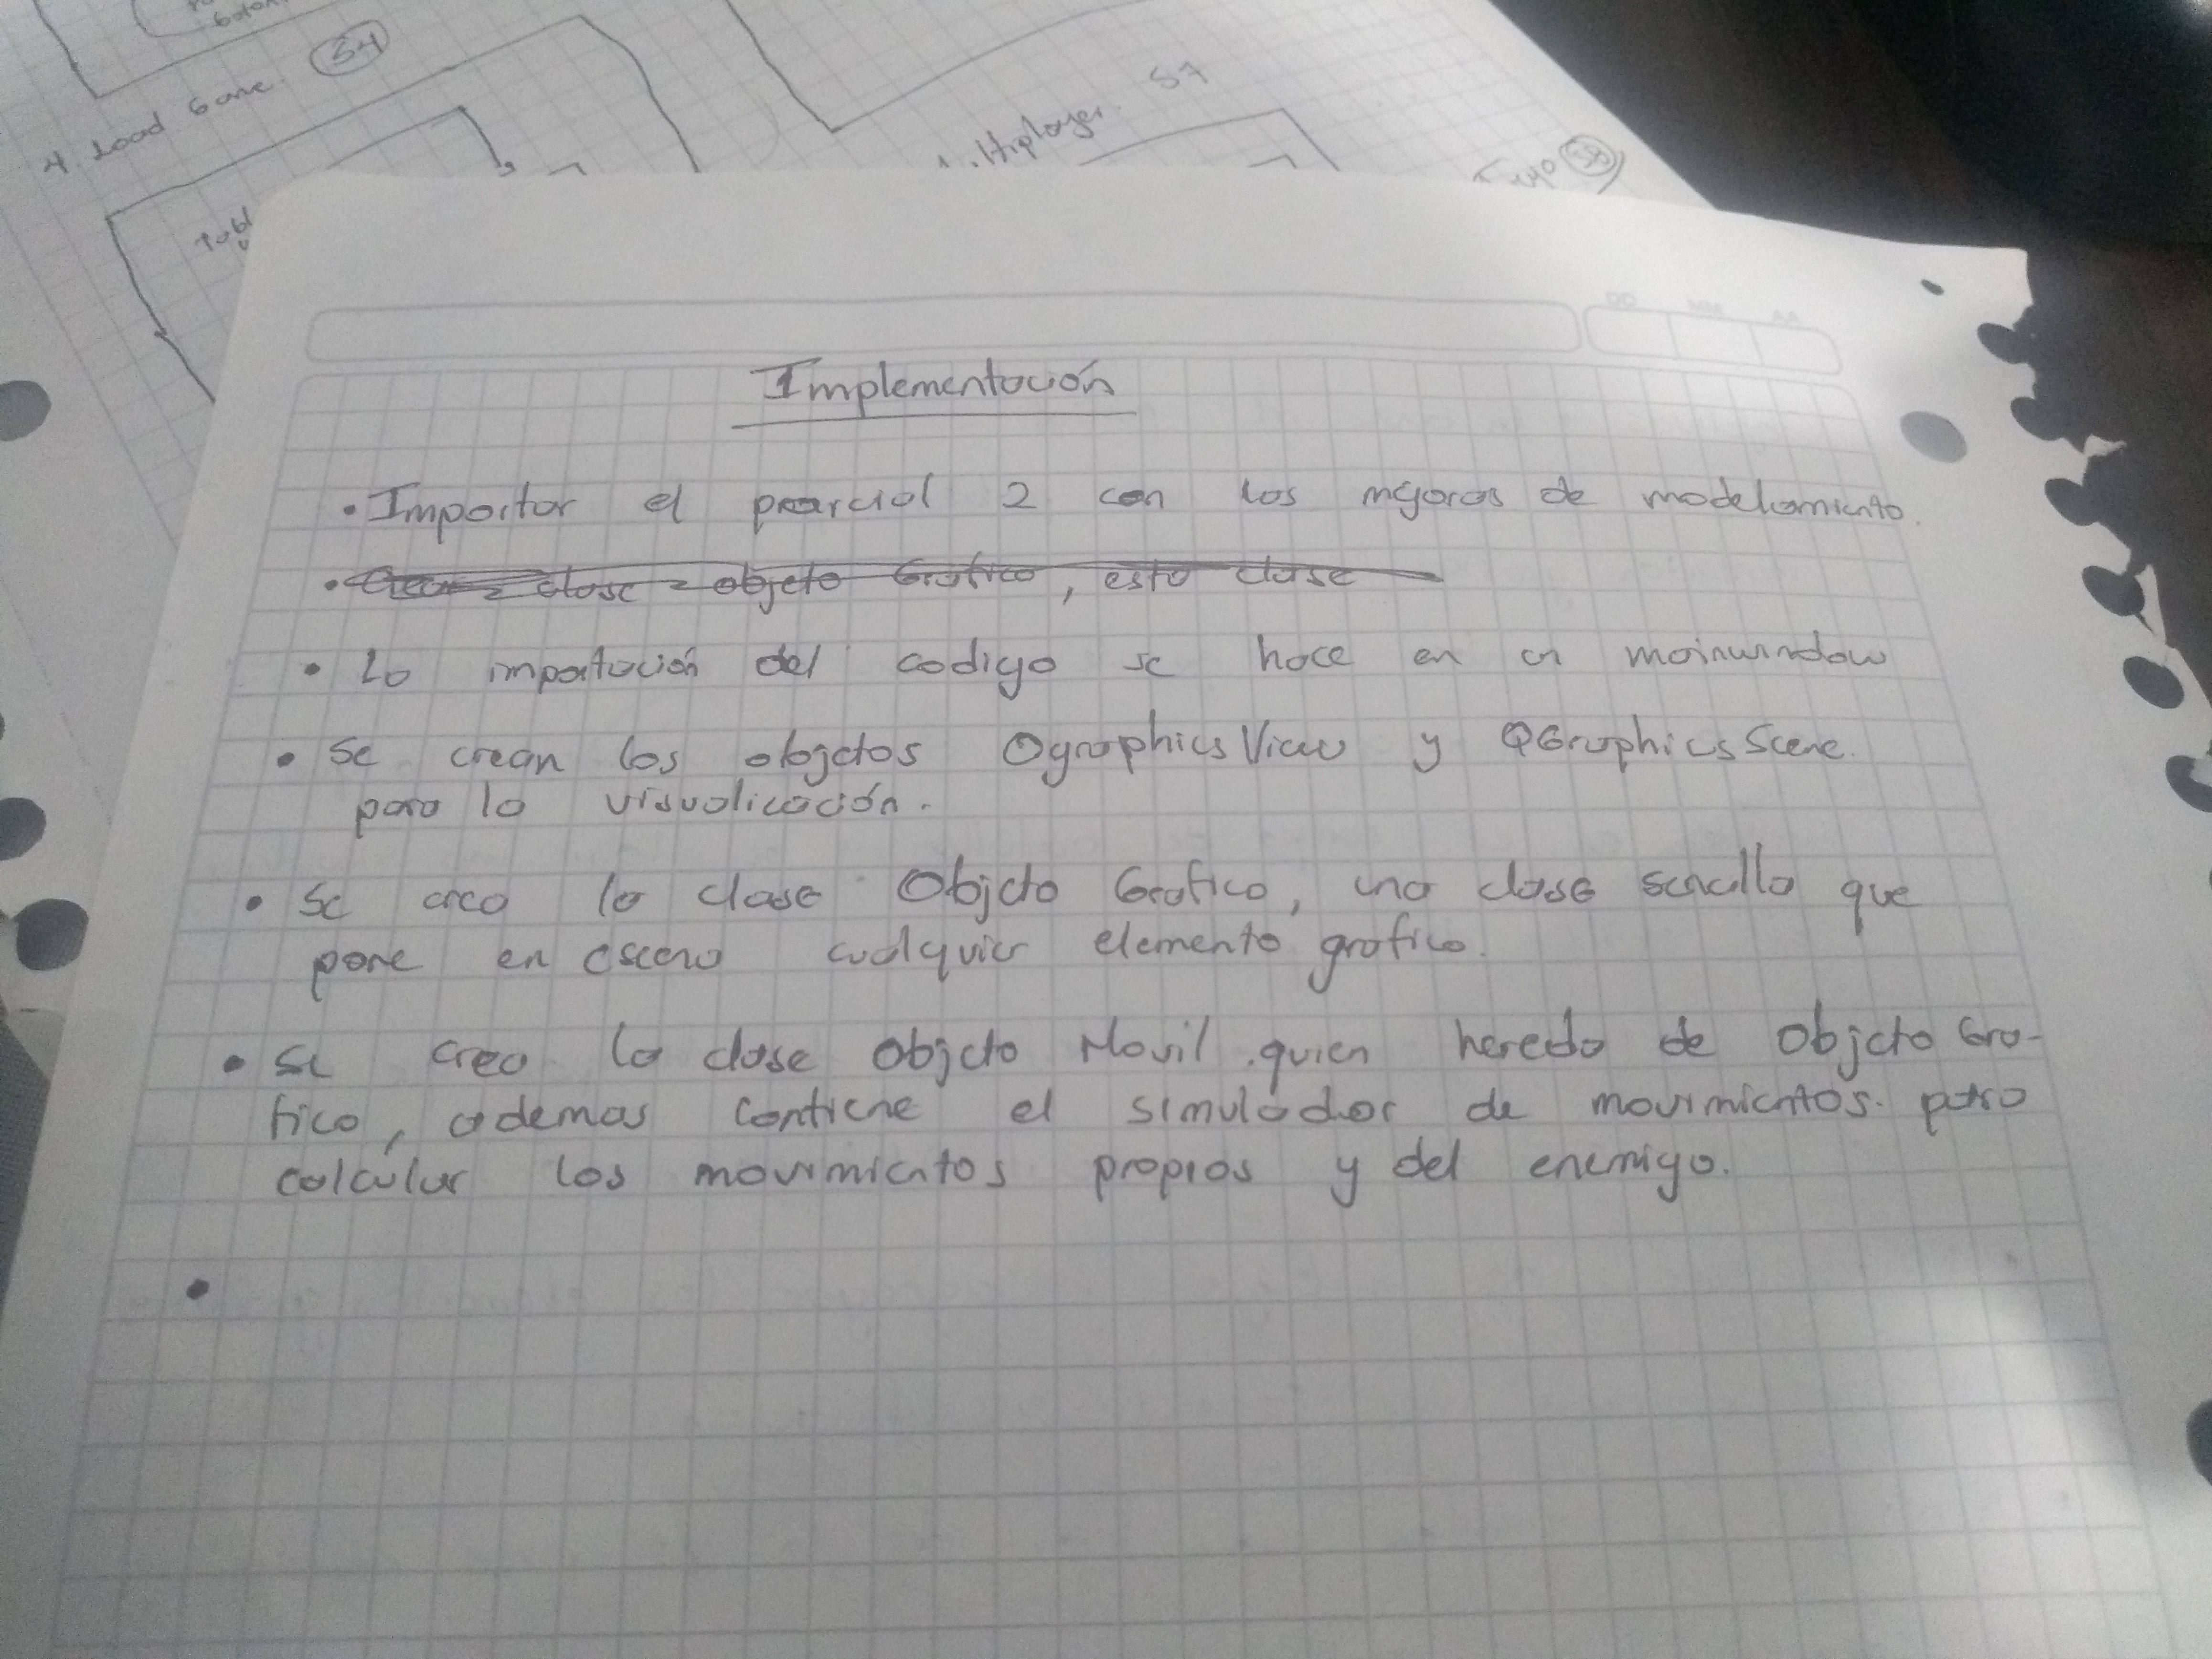 4. Load Game S4
Tabl
ltiplayer. S7
S8
DD MM AA
Implementación
• Importar el parcial 2 con las mejoras de modelamiento.
• clase objeto Grafico, esta clase
• La importación del codigo se hace en un mainwindow
• Se crean los objetos QgraphicsView y QGraphicsScene.
para la visualización.
• Se crea la clase Objeto Grafico, una clase sencilla que
pone en escena cualquier elemento grafico.
• Se crea la clase Objeto Movil quien hereda de Objeto Gra-
fico, ademas contiene el simulador de movimientos para
calcular los movimientos propios y del enemigo.
•